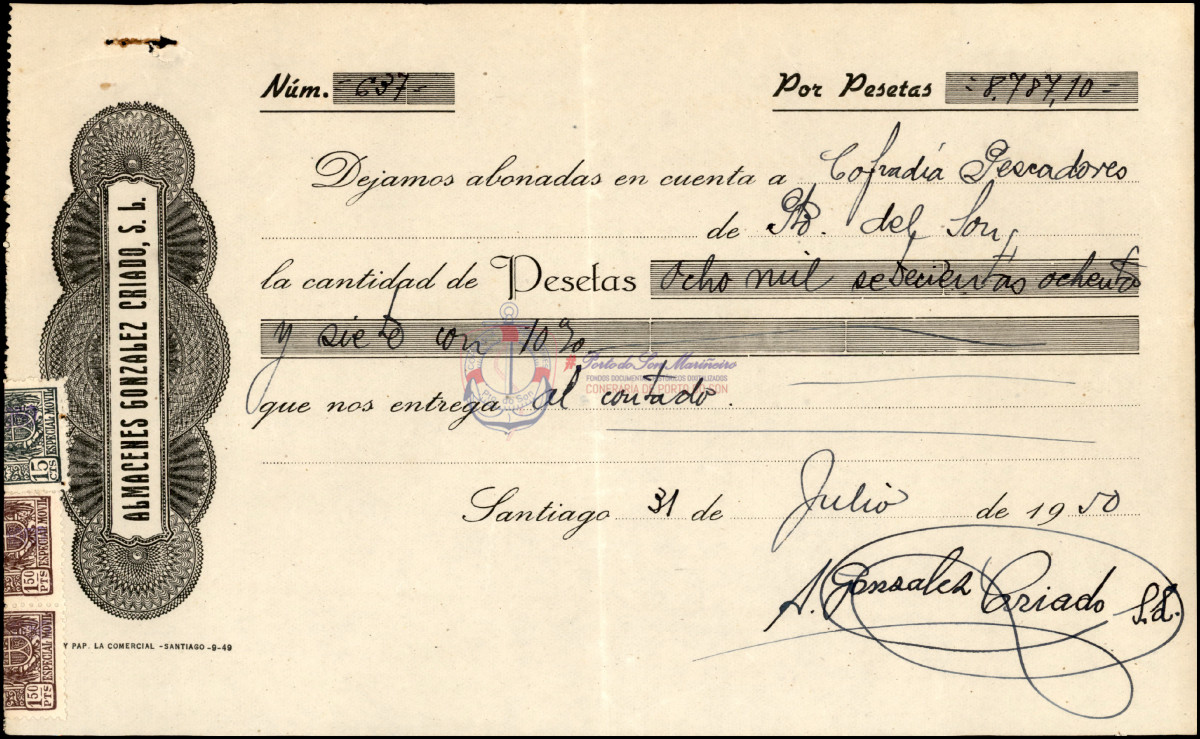 Núm. =637=
Por Pesetas =8.787,10=
Dejamos abonadas en cuenta a Cofradía Pescadores
de Pto. del Son,
la cantidad de Pesetas ocho mil setecientas ochenta
y siete con 10%
que nos entrega al contado.
Santiago 31 de Julio de 1950
A. Gonzalez Criado S.L.
ALMACENES GONZALEZ CRIADO, S. L.
15 CTS ESPECIAL MOVIL
1'50 PTS ESPECIAL MOVIL
1'50 PTS ESPECIAL MOVIL
Y PAP. LA COMERCIAL -SANTIAGO-9-49
Porto do Son Mariñeiro
FONDOS DOCUMENTAIS HISTÓRICOS DIXITALIZADOS
CONFRARÍA DE PORTO DO SON